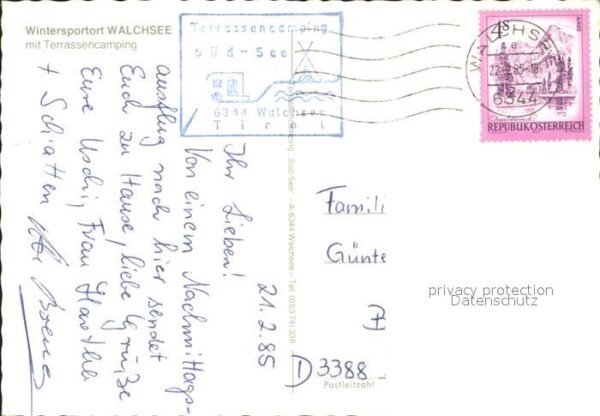 Wintersportort WALCHSEE
mit Terrassencamping
Terrassencamping
Süd-See
6344 Walchsee
Tirol
WALCHSEE
22.2.85-18
6344
4S
REPUBLIK ÖSTERREICH
21.2.85
Ihr Lieben!
Von einem Nachmittags-
ausflug nach hier sendet
Euch zu Hause, liebe Grüße
Eure Uschi, Frau
+ Schiatten
Süd See - A-6344 Walchsee - Tel. (05374) 339
Famili
Günte
D 3388
Postleitzahl
privacy protection
Datenschutz